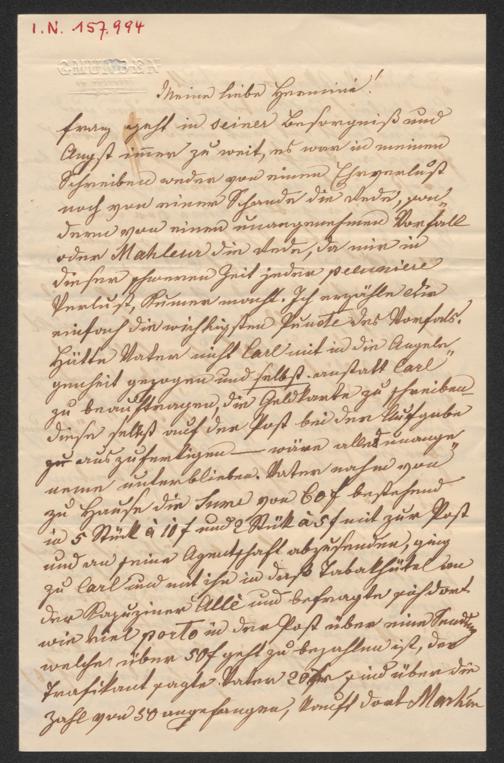 I.N. 157.994
GMUNDEN
Meine liebe Hermine!
Franz geht in seiner Besorgniß und
Angst immer zu weit, es war in meinen
Schreiben weder von einen Ehrverlust
noch von einer Schande die Rede, son„
dern von einen unangenehmen Vorfall
oder Malheur die Rede, da mir in
dieser schweren Zeit jeder pecuniere
Verlust, Kumer macht. Ich erzähle dir
einfach die wichtigsten Puncte des Vorfals.
Hätte Vater nicht Carl mit in die Angele„
genheit gezogen und selbst anstatt Carl
zu beauftragen, die Geldkarte zu schreiben
diese selbst auf der Post bei der Aufgabe
auszufertigen — wäre alles unange„
neme unterblieben. Vater nahm von
zu Hause die Sume von 60 f bestehend
in 5 Stück à 10 f und 2 Stück à 5 f mit zur Post
und an seine Agentschaft abzusenden, ging
zu Carl und mit ihm in daß Tabakhüttel in
der Kapuziner Allè und befragte sich dort
wie viel porto in der Post über eine Sendung
welche über 50 f geht zu bezahlen ist, der
Trafikant sagte Vater 20 sind über die
Zahl von 50 angefangen, kauft dort Marken